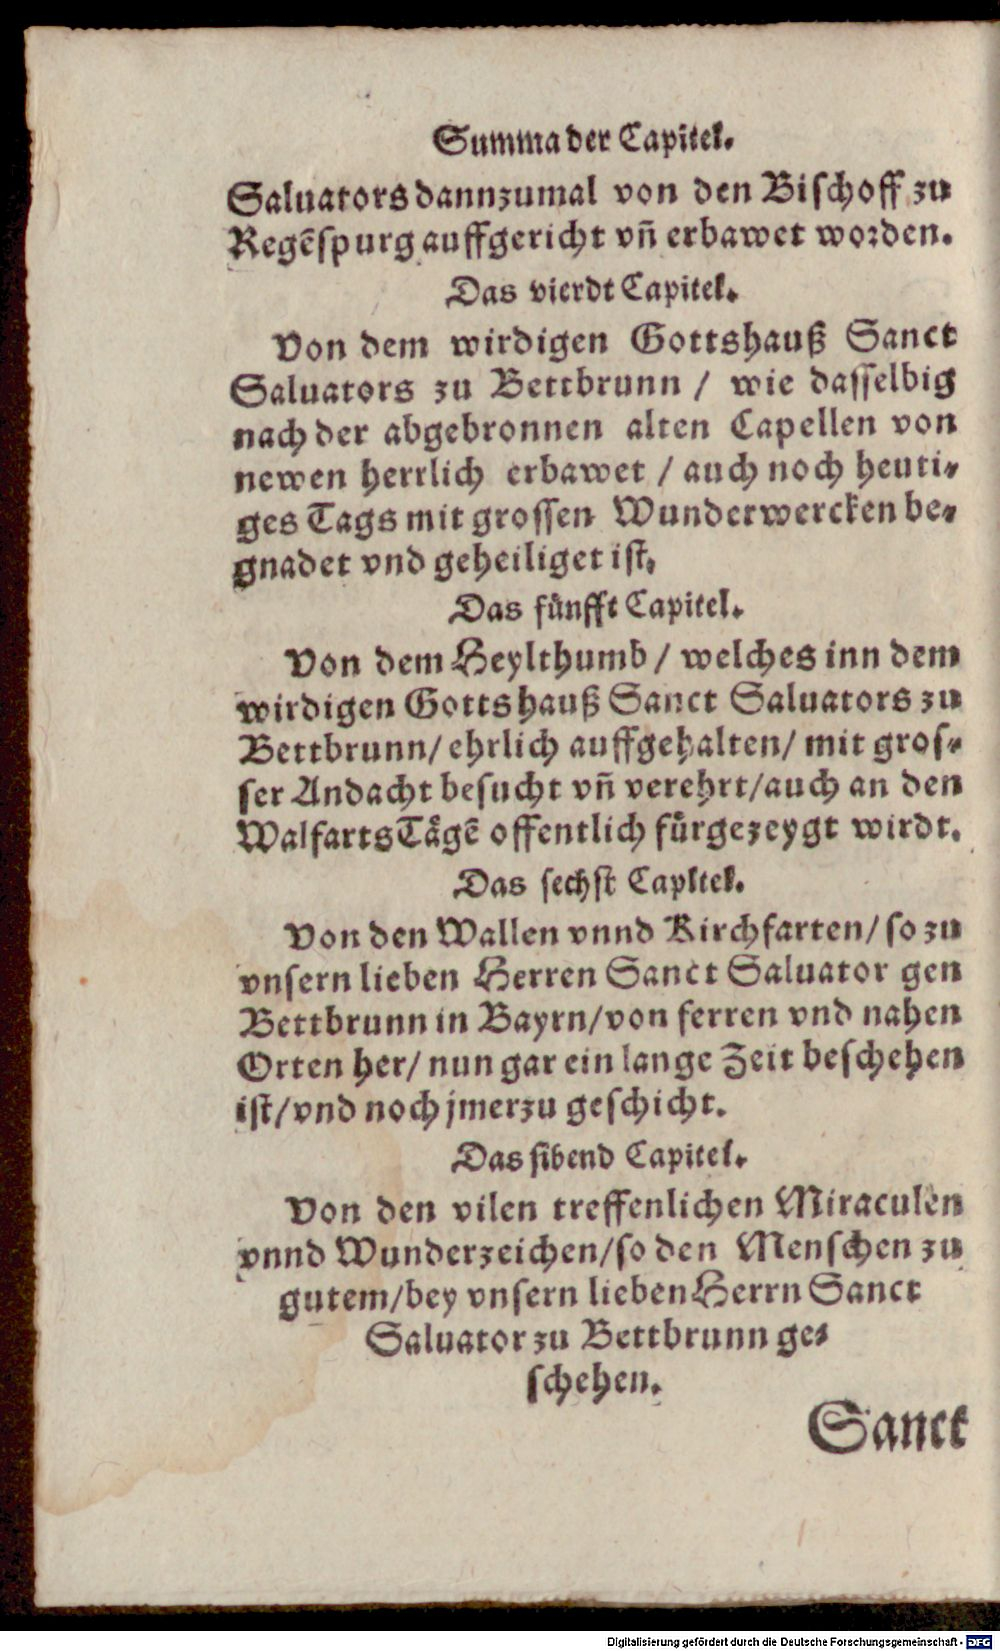 Summa der Capitel.
Saluators dannzumal von den Bischoff zu
Regēspurg auffgericht vñ erbawet worden.
Das vierdt Capitel.
Von dem wirdigen Gottshauß Sanct
Saluators zu Bettbrunn / wie dasselbig
nach der abgebronnen alten Capellen von
newen herrlich erbawet / auch noch heuti-
ges Tags mit grossen Wunderwercken be-
gnadet vnd geheiliget ist.
Das fünfft Capitel.
Von dem Heylthumb / welches inn dem
wirdigen Gottshauß Sanct Saluators zu
Bettbrunn / ehrlich auffgehalten / mit gros-
ser Andacht besucht vñ verehrt / auch an den
Walfarts Tägē offentlich fürgezeygt wirdt.
Das sechst Capitel.
Von den Wallen vnnd Kirchfarten / so zu
vnsern lieben Herren Sanct Saluator gen
Bettbrunn in Bayrn / von ferren vnd nahen
Orten her / nun gar ein lange Zeit beschehen
ist / vnd noch jmerzu geschicht.
Das sibend Capitel.
Von den vilen treffenlichen Miraculen
vnnd Wunderzeichen / so den Menschen zu
gutem / bey vnsern lieben Herrn Sanct
Saluator zu Bettbrunn ge-
schehen.
Sanct
Digitalisierung gefördert durch die Deutsche Forschungsgemeinschaft - DFG